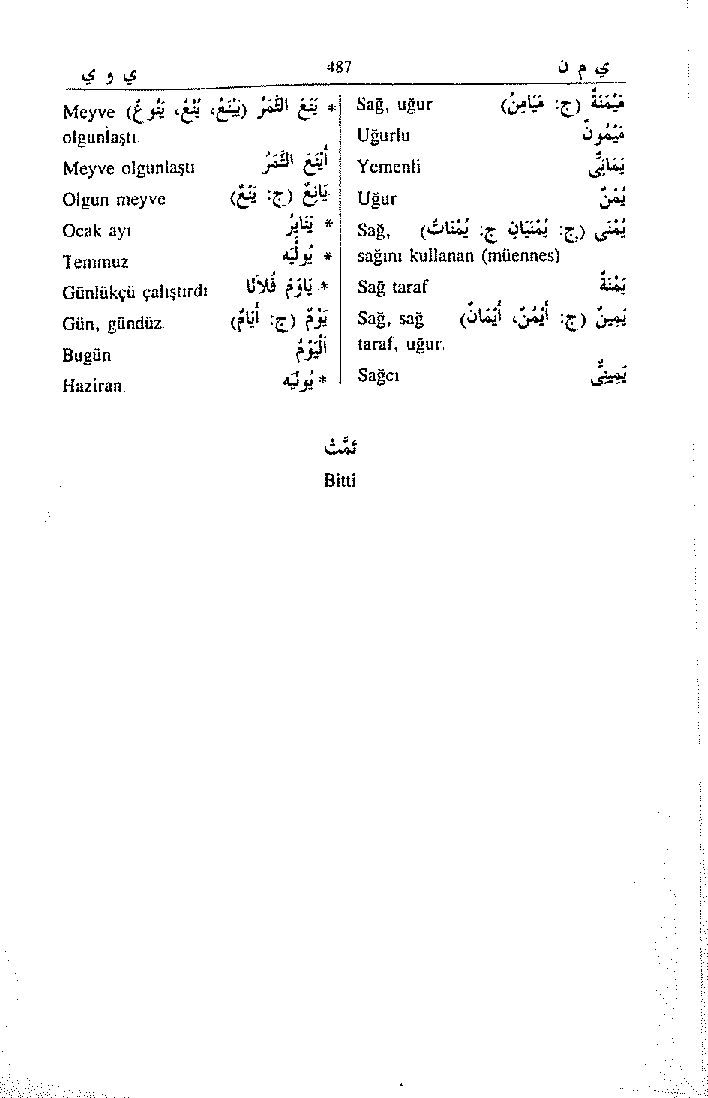 ي م ن 487 ي و ي
مَيْمَنَةٌ (ج: مَيَامِنُ) Sağ, uğur
مَيْمُونٌ Uğurlu
يَمَانِيٌّ Yemenli
يُمْنٌ Uğur
يُمْنَى (ج: يُمْنَيَانِ ج: يُمْنَيَاتٌ) Sağ,
sağını kullanan (müennes)
يَمْنَةٌ Sağ taraf
يَمِينٌ (ج: أَيْمُنٌ، أَيْمَانٌ) Sağ, sağ
taraf, uğur.
يَمِينِيٌّ Sağcı
* يَنَعَ الثَّمَرُ (يَيْنَعُ، يَنْعٌ، يُنُوعٌ) Meyve
olgunlaştı.
أَيْنَعَ الثَّمَرُ Meyve olgunlaştı
يَانِعٌ (ج: يَنْعٌ) Olgun meyve
* يَنَايِرُ Ocak ayı
* يُولْيَه Temmuz
* يَاوَمَ فُلَانًا Günlükçü çalıştırdı
يَوْمٌ (ج: أَيَّامٌ) Gün, gündüz.
اَلْيَوْمَ Bugün
* يُونْيَه Haziran.
تَمَّتْ
Bitti